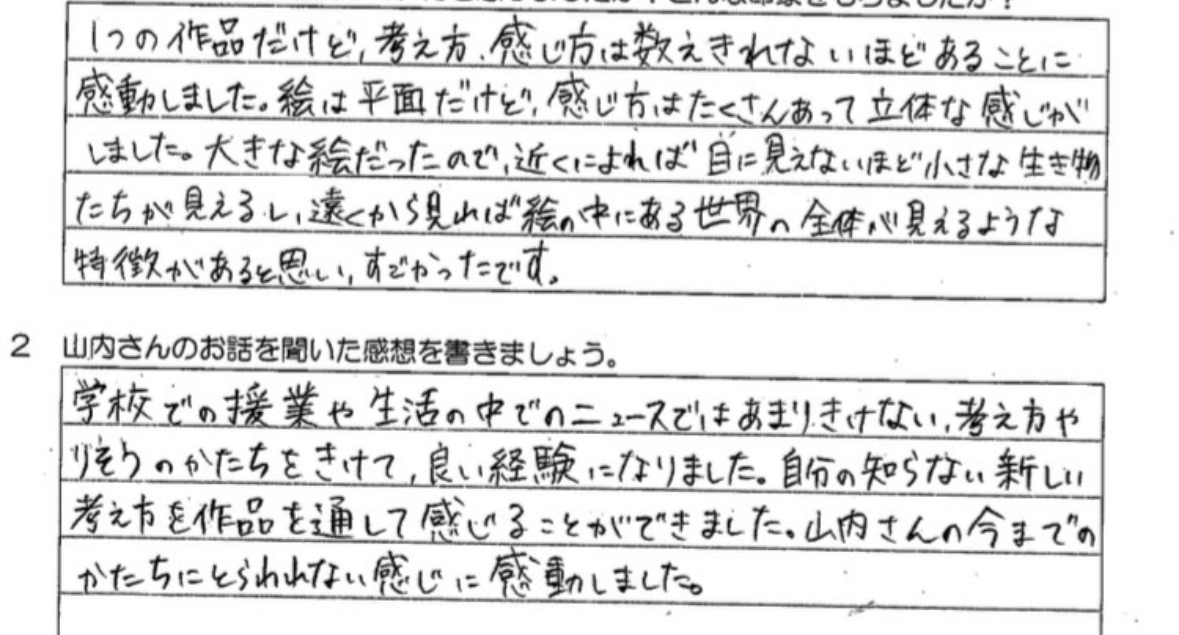 1つの作品だけど、考え方、感じ方は数えきれないほどあることに
感動しました。絵は平面だけど、感じ方はたくさんあって立体な感じが
しました。大きな絵だったので、近くによれば目に見えないほど小さな生き物
たちが見えるし、遠くから見れば絵の中にある世界の全体が見えるような
特徴があると思い、すごかったです。
2 山内さんのお話を聞いた感想を書きましょう。
学校での援業や生活の中でのニュースではあまりきけない、考え方や
りそうのかたちをきけて、良い経験になりました。自分の知らない新しい
考え方を作品を通して感じることができました。山内さんの今までの
かたちにとらわれない感じに感動しました。